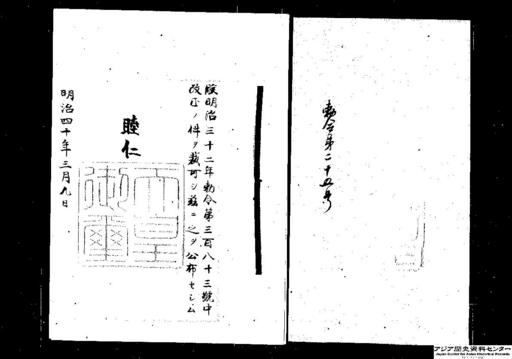 勅令第二十五号
朕明治三十二年勅令第三百八十三號中
改正ノ件ヲ裁可シ茲ニ之ヲ公布セシム
睦仁
天皇
御璽
明治四十年三月九日
アジア歴史資料センター
Japan Center for Asian Historical Records